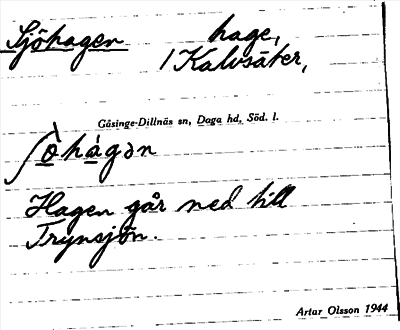 Sjöhagen hage,
1 Kalvsäter,
Gåsinge-Dillnäs sn, Daga hd, Söd. l.
ʃö̀hàgən
Hagen går ned till
Trynsjön.
Artur Olsson 1944